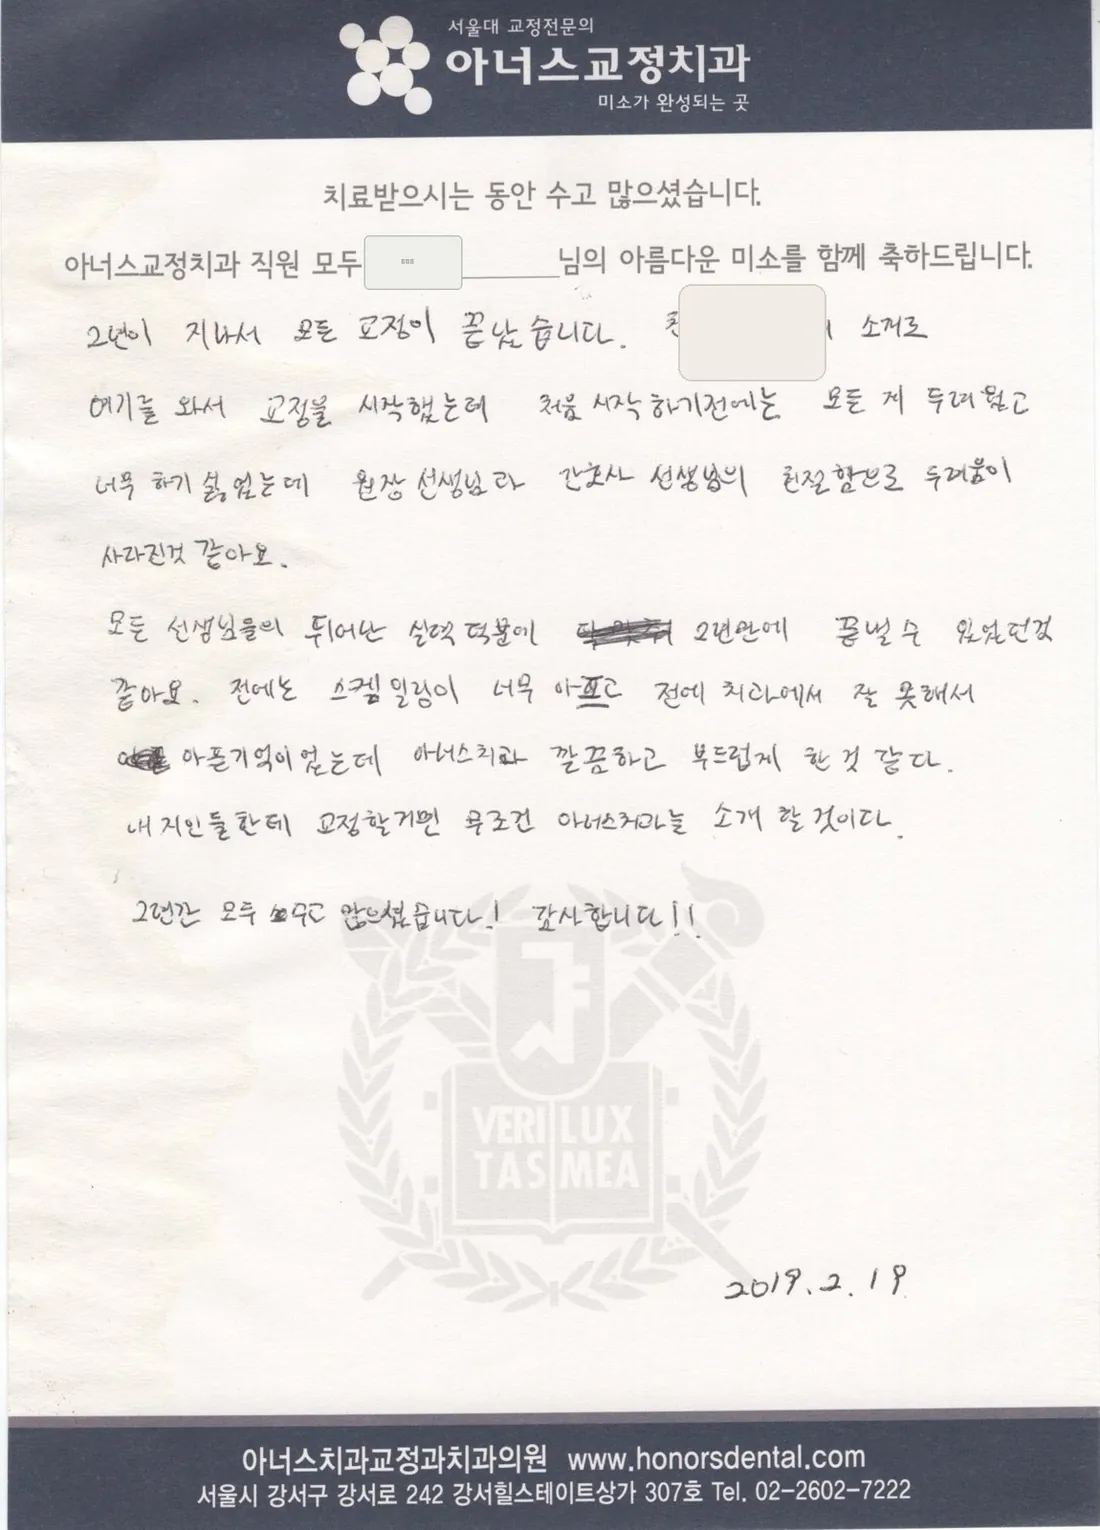 서울대 교정전문의
아너스교정치과
미소가 완성되는 곳
치료받으시는 동안 수고 많으셨습니다.
아너스교정치과 직원 모두 님의 아름다운 미소를 함께 축하드립니다.
2년이 지나서 모든 교정이 끝났습니다. 소개로
여기를 와서 교정을 시작했는데 처음 시작하기전에는 모든 게 두려웠고
너무 하기 싫었는데 원장선생님과 간호사 선생님의 친절함으로 두려움이
사라진것 같아요.
모든 선생님들의 뛰어난 실력 덕분에 2년만에 끝낼 수 있었던것
같아요. 전에는 스켈일링이 너무 아프고 전에 치과에서 잘 못해서
아픈기억이었는데 아너스치과 깔끔하고 부드럽게 한 것 같다.
내 지인들한테 교정할거면 무조건 아너스치과를 소개 할 것이다.
2년간 모두 수고 많으셨습니다! 감사합니다!!
VERI LUX
TAS MEA
2019.2.19
아너스치과교정과치과의원 www.honorsdental.com
서울시 강서구 강서로 242 강서힐스테이트상가 307호 Tel. 02-2602-7222